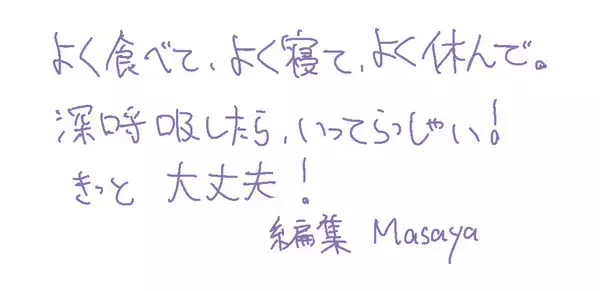 よく食べて、よく寝て、よく休んで。
深呼吸したら、いってらっしゃい!
きっと 大丈夫!
編集 Masaya